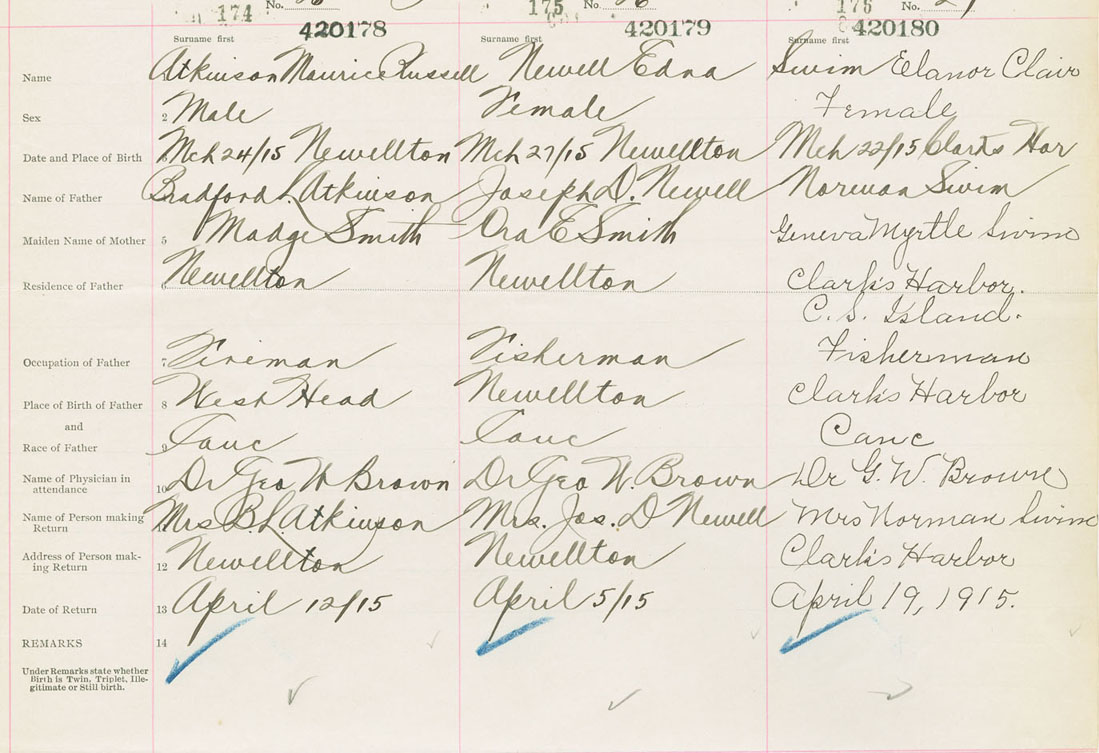 174 No. 175 No. 176 No.
420178 420179 420180
Surname first Surname first Surname first
Name Atkinson Maurice Russell Newell Edna Swim Elanor Clair
Sex 2 Male Female Female
Date and Place of Birth Mch 24/15 Newellton Mch 27/15 Newellton Mch 22/15 Clarks Har
Name of Father Bradford L. Atkinson Joseph D. Newell Norman Swim
Maiden Name of Mother 5 Madge Smith Ora E Smith Geneva Myrtle Swim
Residence of Father Newellton Newellton Clark's Harbor.
C. S. Island.
Occupation of Father 7 Fireman Fisherman Fisherman
Place of Birth of Father 8 West Head Newellton Clark's Harbor
and
Race of Father 9 Cauc Cauc Canc
Name of Physician in
attendance 10 Dr Geo W Brown Dr Geo W. Brown Dr G. W. Browne
Name of Person making
Return Mrs B. L. Atkinson Mrs. Jos. D Newell Mrs Norman Swim
Address of Person mak-
ing Return 12 Newellton Newellton Clark's Harbor
Date of Return 13 April 12/15 April 5/15 April 19, 1915.
REMARKS 14
Under Remarks state whether
Birth is Twin, Triplet, Ille-
gitimate or Still birth.